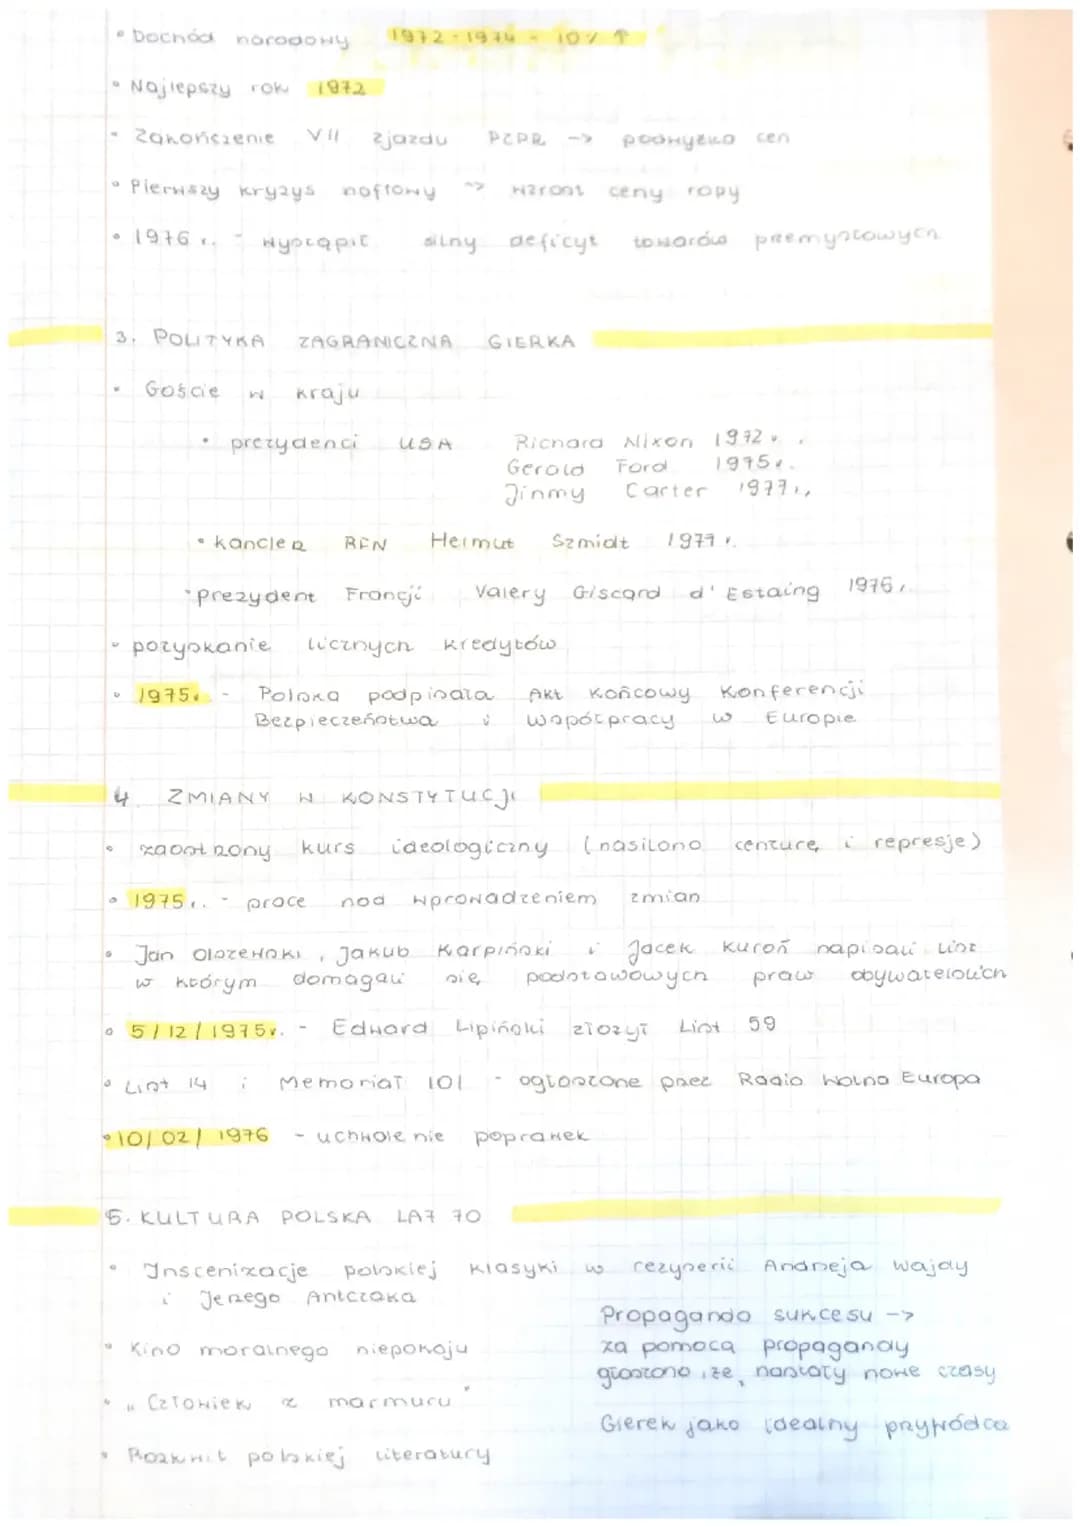 • Dochód narodowy 1972-1974 - 10% ↑
• Najlepszy rok 1972
• Zakończenie VII zjazdu PZPR -> podwyżka cen
• Pierwszy kryzys naftowy ~> wzrost ceny ropy
• 1976 r. - wystąpił silny deficyt towarów przemysłowych
3. POLITYKA ZAGRANICZNA GIERKA
• Goście w kraju
• prezydenci USA Richard Nixon 1972 r.
Gerald Ford 1975 r.
Jinmy Carter 1977 r.
• kanclerz RFN Helmut Szmidt 1977 r.
• prezydent Francji Valery Giscard d'Estaing 1975 r.
• pozyskanie licznych kredytów
• 1975r. - Polska podpisała Akt Końcowy Konferencji
Bezpieczeństwa i współpracy w Europie
4. ZMIANY W KONSTYTUCJI
• zaostrzony kurs ideologiczny (nasilono cenzurę i represje)
• 1975r. - prace nad wprowadzeniem zmian
• Jan Olszewski, Jakub Karpiński i Jacek Kuroń napisali list
w którym domagali się podstawowych praw obywatelskich
• 5/12/1975r. - Edward Lipiński złożył List 59
• List 14 i Memoriał 101 - ogłoszone przez Radio Wolna Europa
• 10/02/1976 - uchwolenie poprawek
5. KULTURA POLSKA LAT 70
• Inscenizacje polskiej klasyki w reżyserii Andrzeja Wajdy
i Jerzego Antczaka
Propaganda sukcesu ->
za pomocą propagandy
głoszono, że nastały nowe czasy
Gierek jako idealny przywódca
• Kino moralnego niepokoju
• "Człowiek z marmuru"
• Rozkwit polskiej literatury